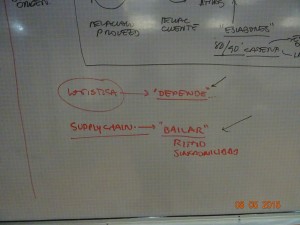 ORIGEN
RELACION
PROVEED
RELAC
CLIENTE
"ESLABONES"
CADENA
LOGISTICA → "DEPENDE"
SUPPLY CHAIN → "BAILAR"
RITMO
SINCRONICIDAD
08 06 2016